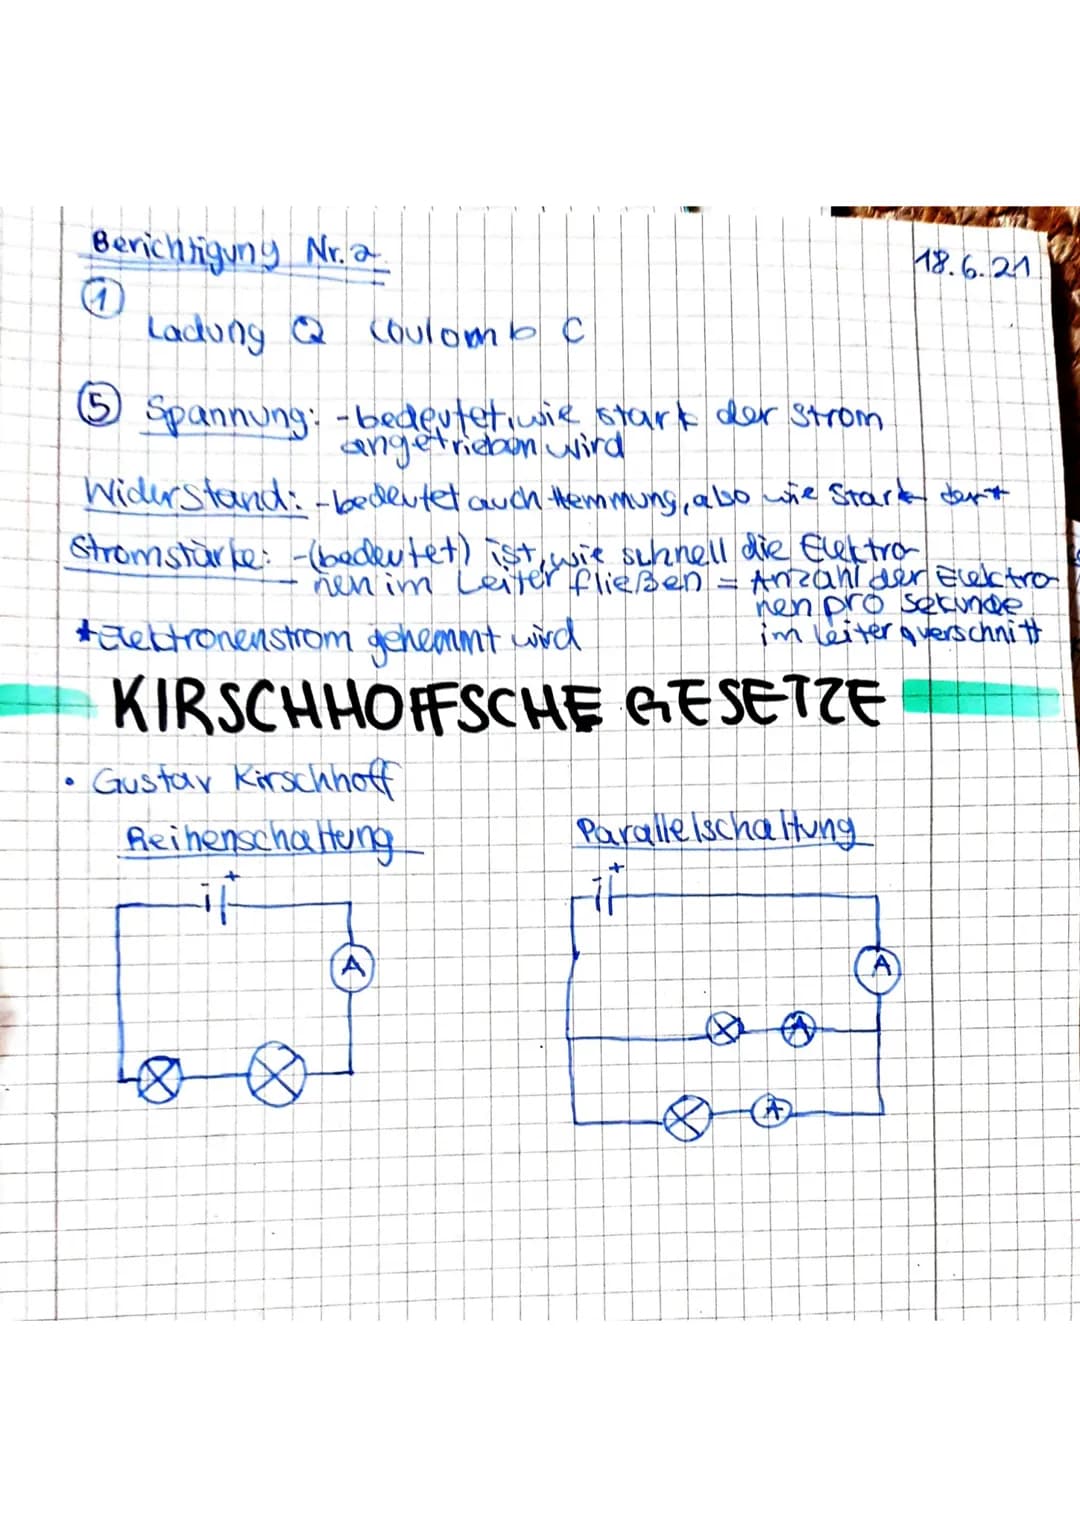 Berichtigung Nr. 2
18.6.21
1
Ladung Q Coulomb C
5 Spannung: - bedeutet, wie stark der Strom
angetrieben wird
Widerstand: - bedeutet auch Hemmung, also wie stark der*
Stromstärke: - (bedeutet) ist, wie schnell die Elektro-
nen im Leiter fließen = Anzahl der Elektro
nen pro Sekunde
*Elektronenstrom gehemmt wird
im Leiterquerschnitt
KIRSCHHOFFSCHE GESETZE
• Gustav Kirschhoff
Reihenschaltung
Parallelschaltung
+
+
A
A
A
A